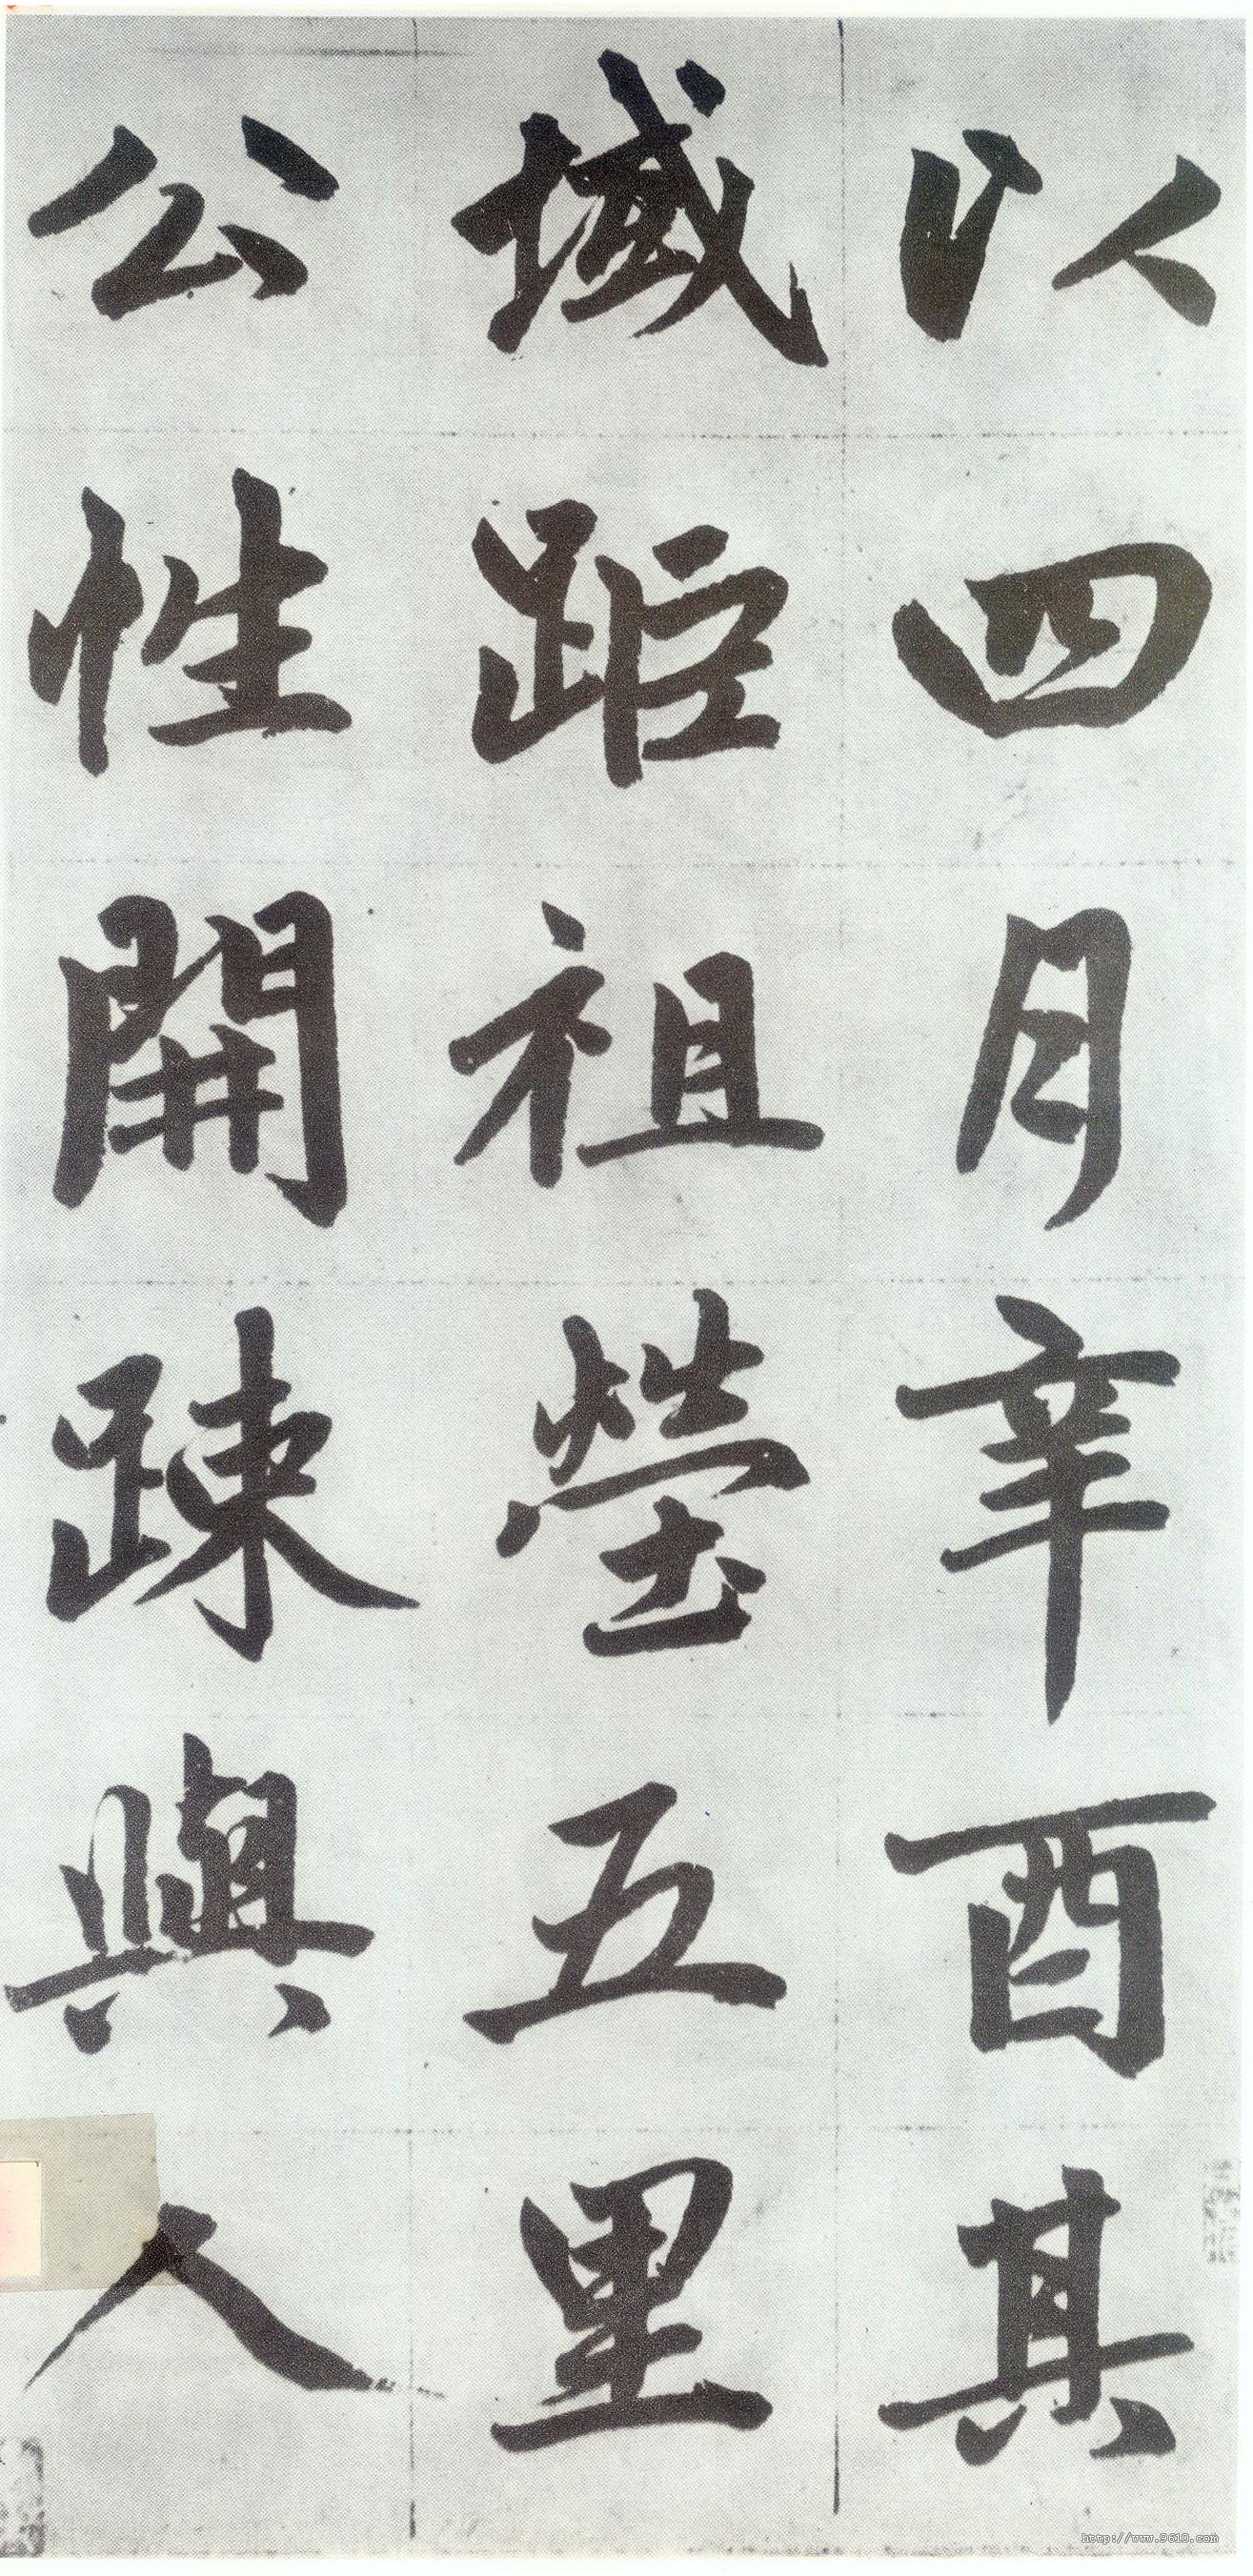 以四月辛酉其
域距祖塋五里
公性開踈與人
http://www.9610.com